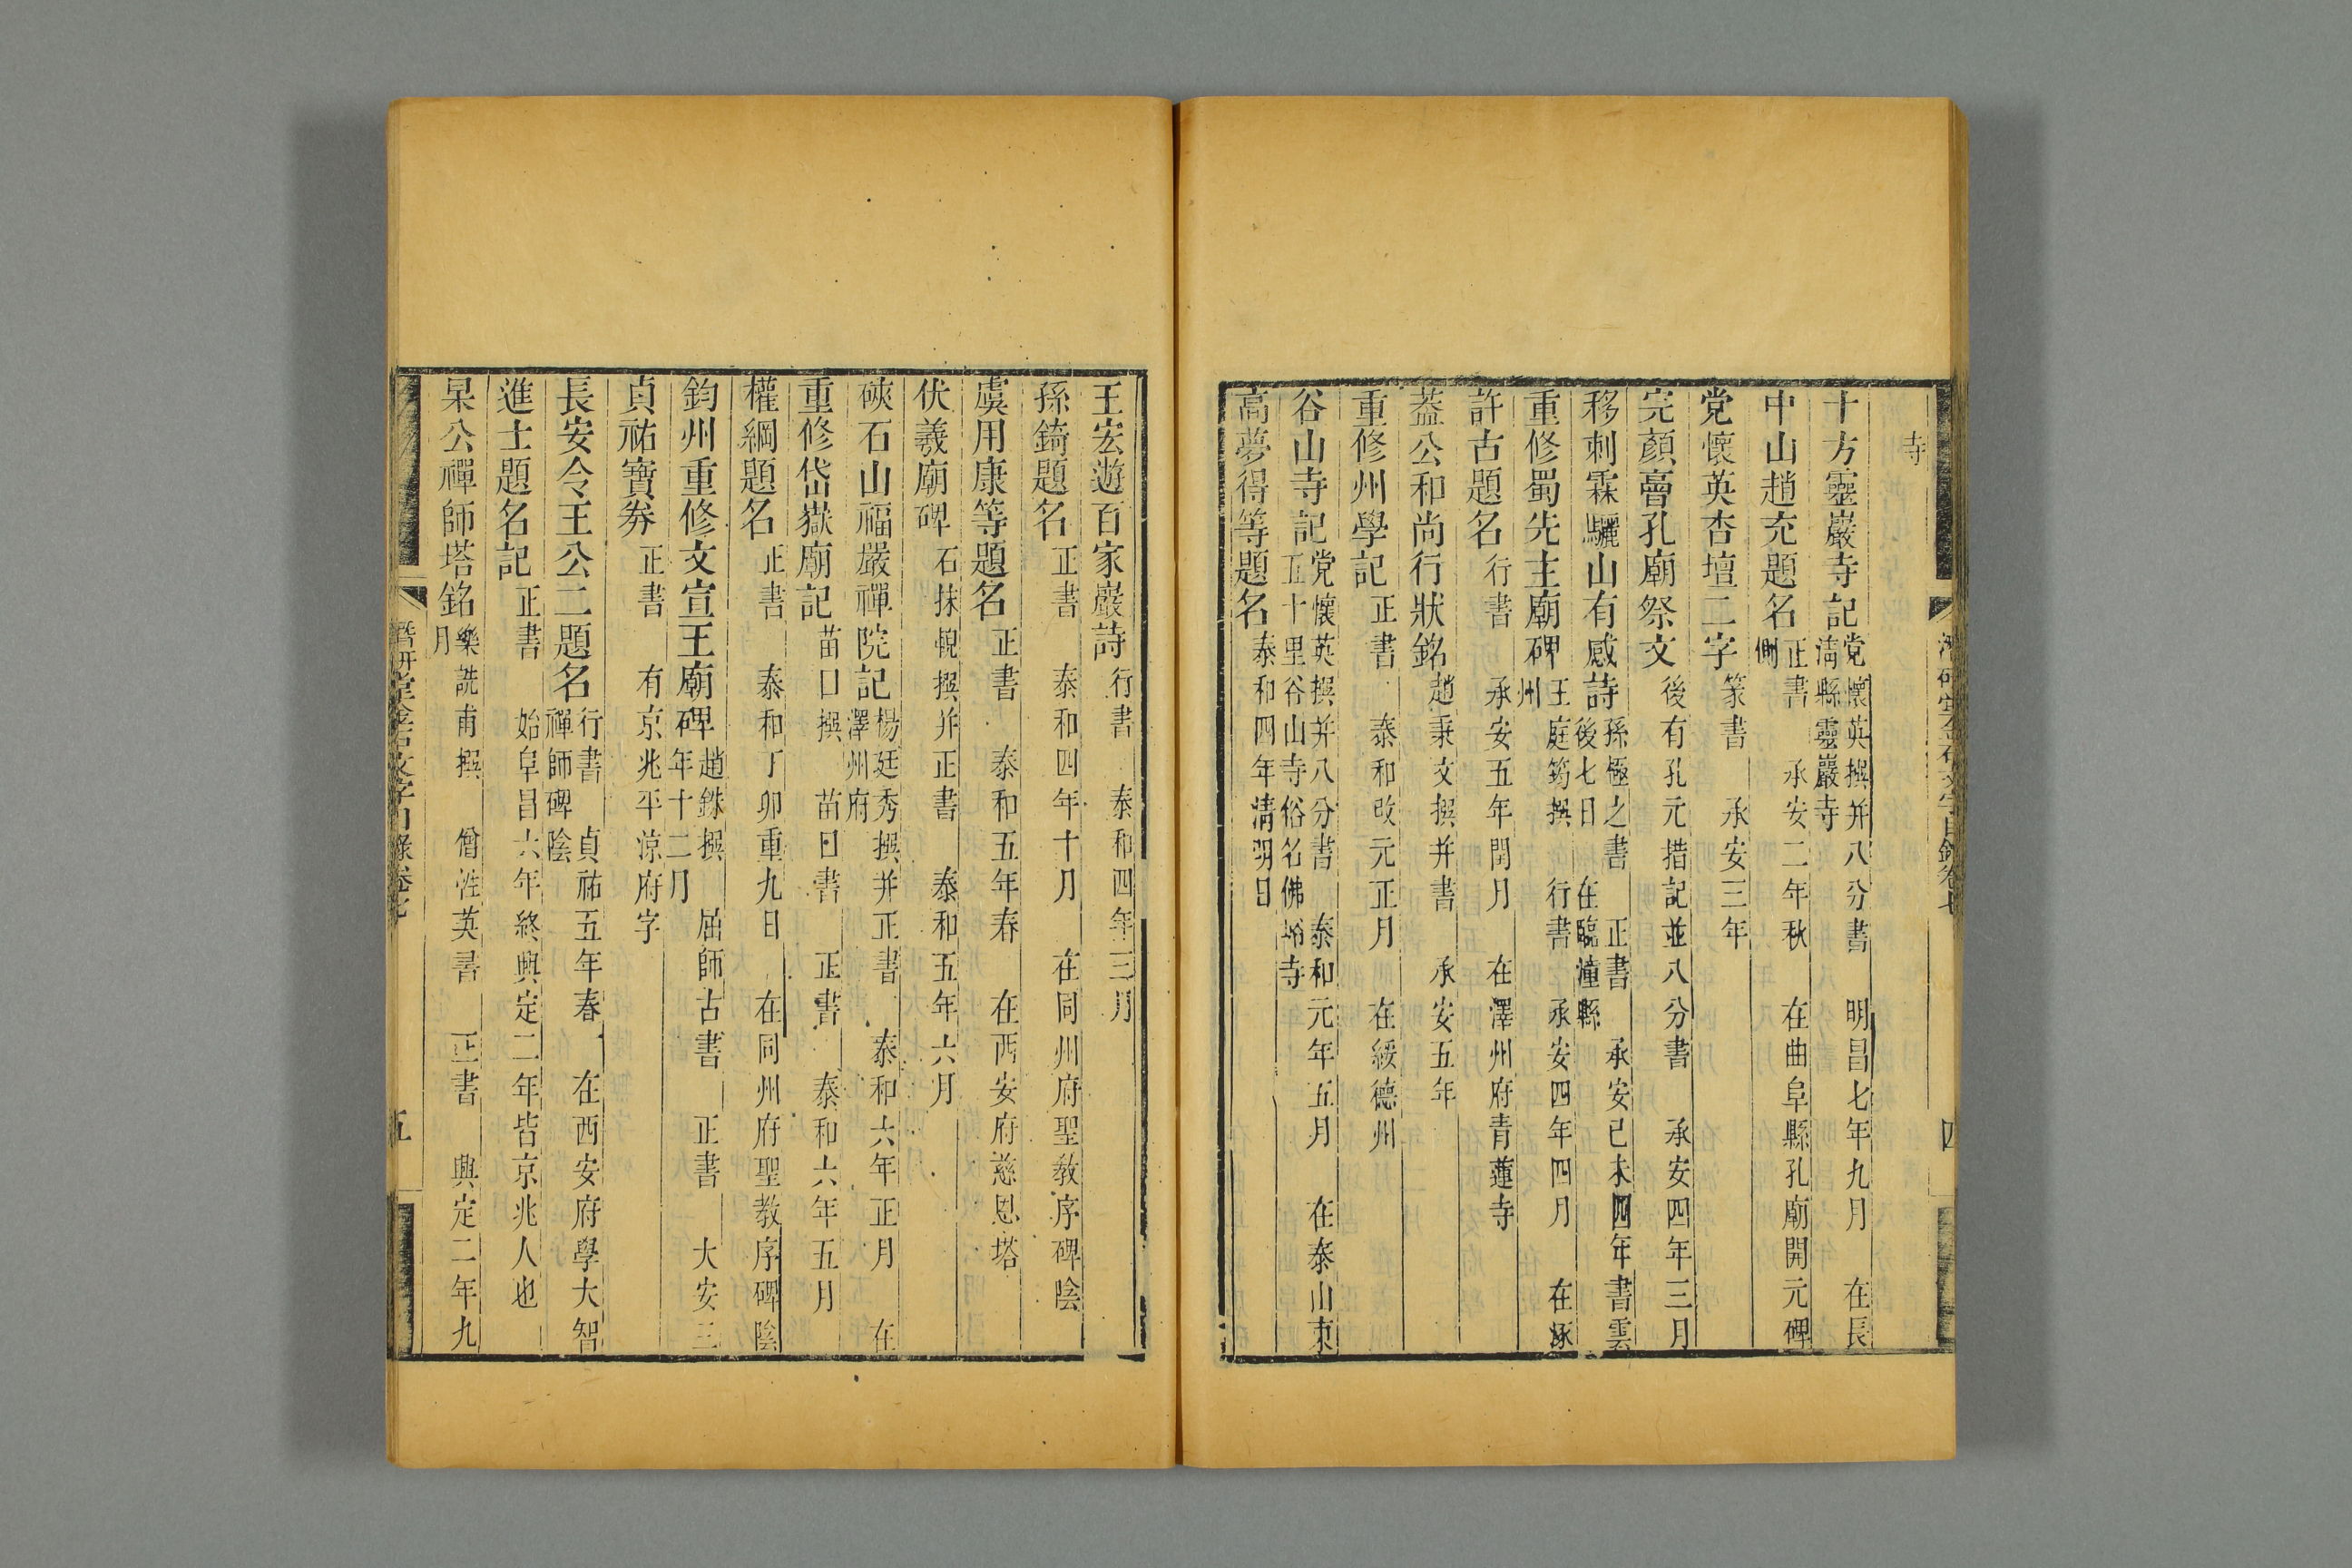 寺
十方靈巖寺記 党懷英撰并八分書 明昌七年九月 在長清縣靈巖寺
中山趙充題名 正書 承安二年秋 在曲阜縣孔廟開元碑側
党懷英杏壇二字 篆書 承安三年
完顏膏孔廟祭文 後有孔元措記並八分書 承安四年三月
移刺霖驪山有感詩 孫極之書 正書 承安己未四年書雲後七日 在臨潼縣
重修蜀先主廟碑 王庭筠撰 行書 承安四年四月 在涿州
許古題名 行書 承安五年閏月 在澤州府青蓮寺
葢公和尚行狀銘 趙秉文撰并書 承安五年
重修州學記 正書 泰和改元正月 在綏德州
谷山寺記 党懷英撰并八分書 泰和元年五月 在泰山東五十里谷山寺俗名佛峪寺
高夢得等題名 泰和四年清明日
潛研堂金石文字目錄卷七 四
王宏遊百家巖詩 行書 泰和四年三月
孫錡題名 正書 泰和四年十月 在同州府聖教序碑陰
虞用康等題名 正書 泰和五年春 在西安府慈恩塔
伏羲廟碑 石抹輗撰并正書 泰和五年六月
硤石山福嚴禪院記 楊廷秀撰并正書 泰和六年正月 在澤州府
重修岱嶽廟記 苗口撰 苗口書 正書 泰和六年五月
權綱題名 正書 泰和丁卯重九日 在同州府聖教序碑陰
鈞州重修文宣王廟碑 趙銖撰 屈師古書 正書 大安三年十二月
貞祐寶券 正書 有京兆平涼府字
長安令王公二題名 行書 貞祐五年春 在西安府學大智禪師碑陰
進士題名記 正書 始阜昌六年終興定二年皆京兆人也
杲公禪師塔銘 樂詵甫撰 僧性英書 正書 興定二年九月
潛研堂金石文字目錄卷七 五